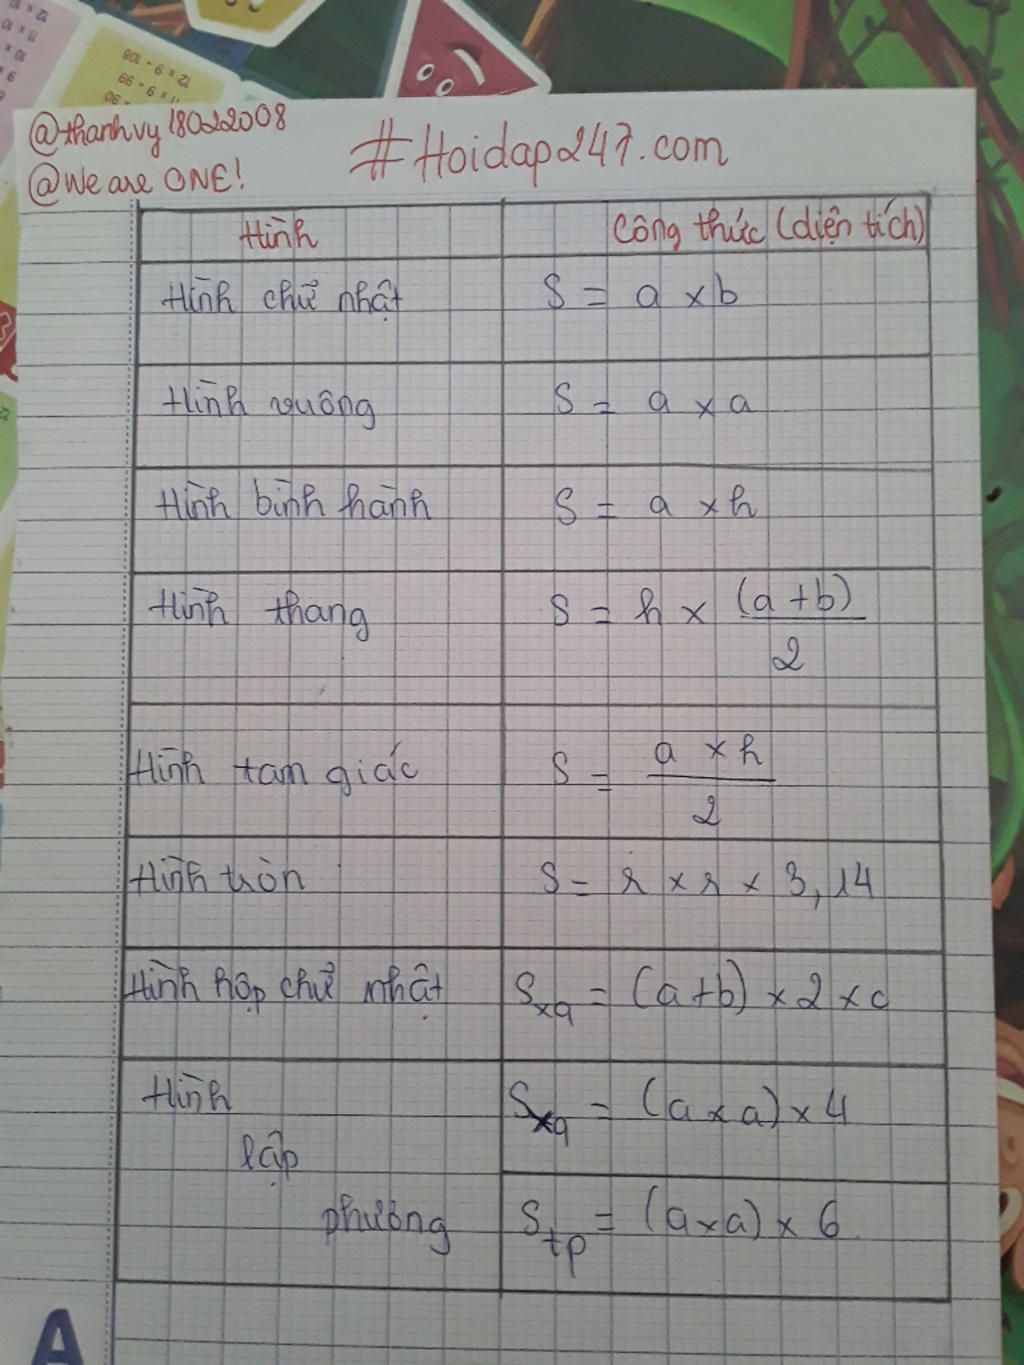 12 x 9 = 108
@thanhvy18022008
@We are ONE!
#Hoidap247.com
Hình
Công thức (diện tích)
Hình chữ nhật
S = a x b
Hình vuông
S = a x a
Hình bình hành
S = a x h
Hình thang
S = h x (a + b)
2
Hình tam giác
S = a x h
2
Hình tròn
S = r x r x 3,14
Hình hộp chữ nhật
Sxq = (a+b) x 2 x c
Hình
lập
phương
Sxq = (a x a) x 4
Stp = (a x a) x 6
A